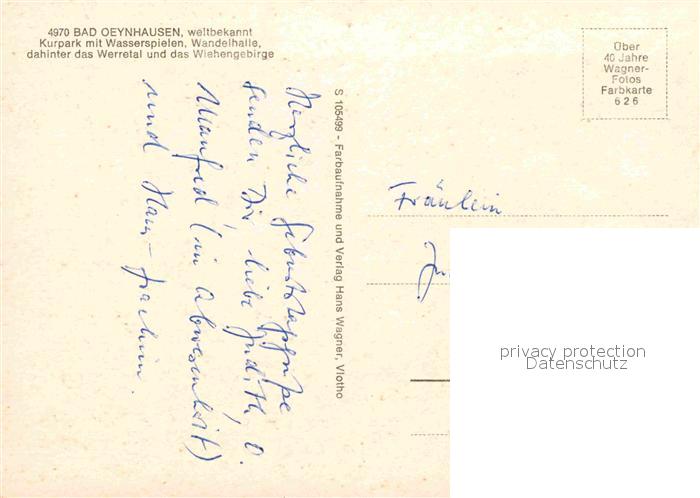 4970 BAD OEYNHAUSEN, weltbekannt
Kurpark mit Wasserspielen, Wandelhalle,
dahinter das Werretal und das Wiehengebirge
Herzliche Geburtstagsgrüße
senden Dir, liebe Judith, O.
Manfred (in Abwesenheit)
und Hans-Joachim.
S 105499 - Farbaufnahme und Verlag Hans Wagner, Vlotho
Über
40 Jahre
Wagner-
Fotos
Farbkarte
626
Fräulein
Ju
privacy protection
Datenschutz